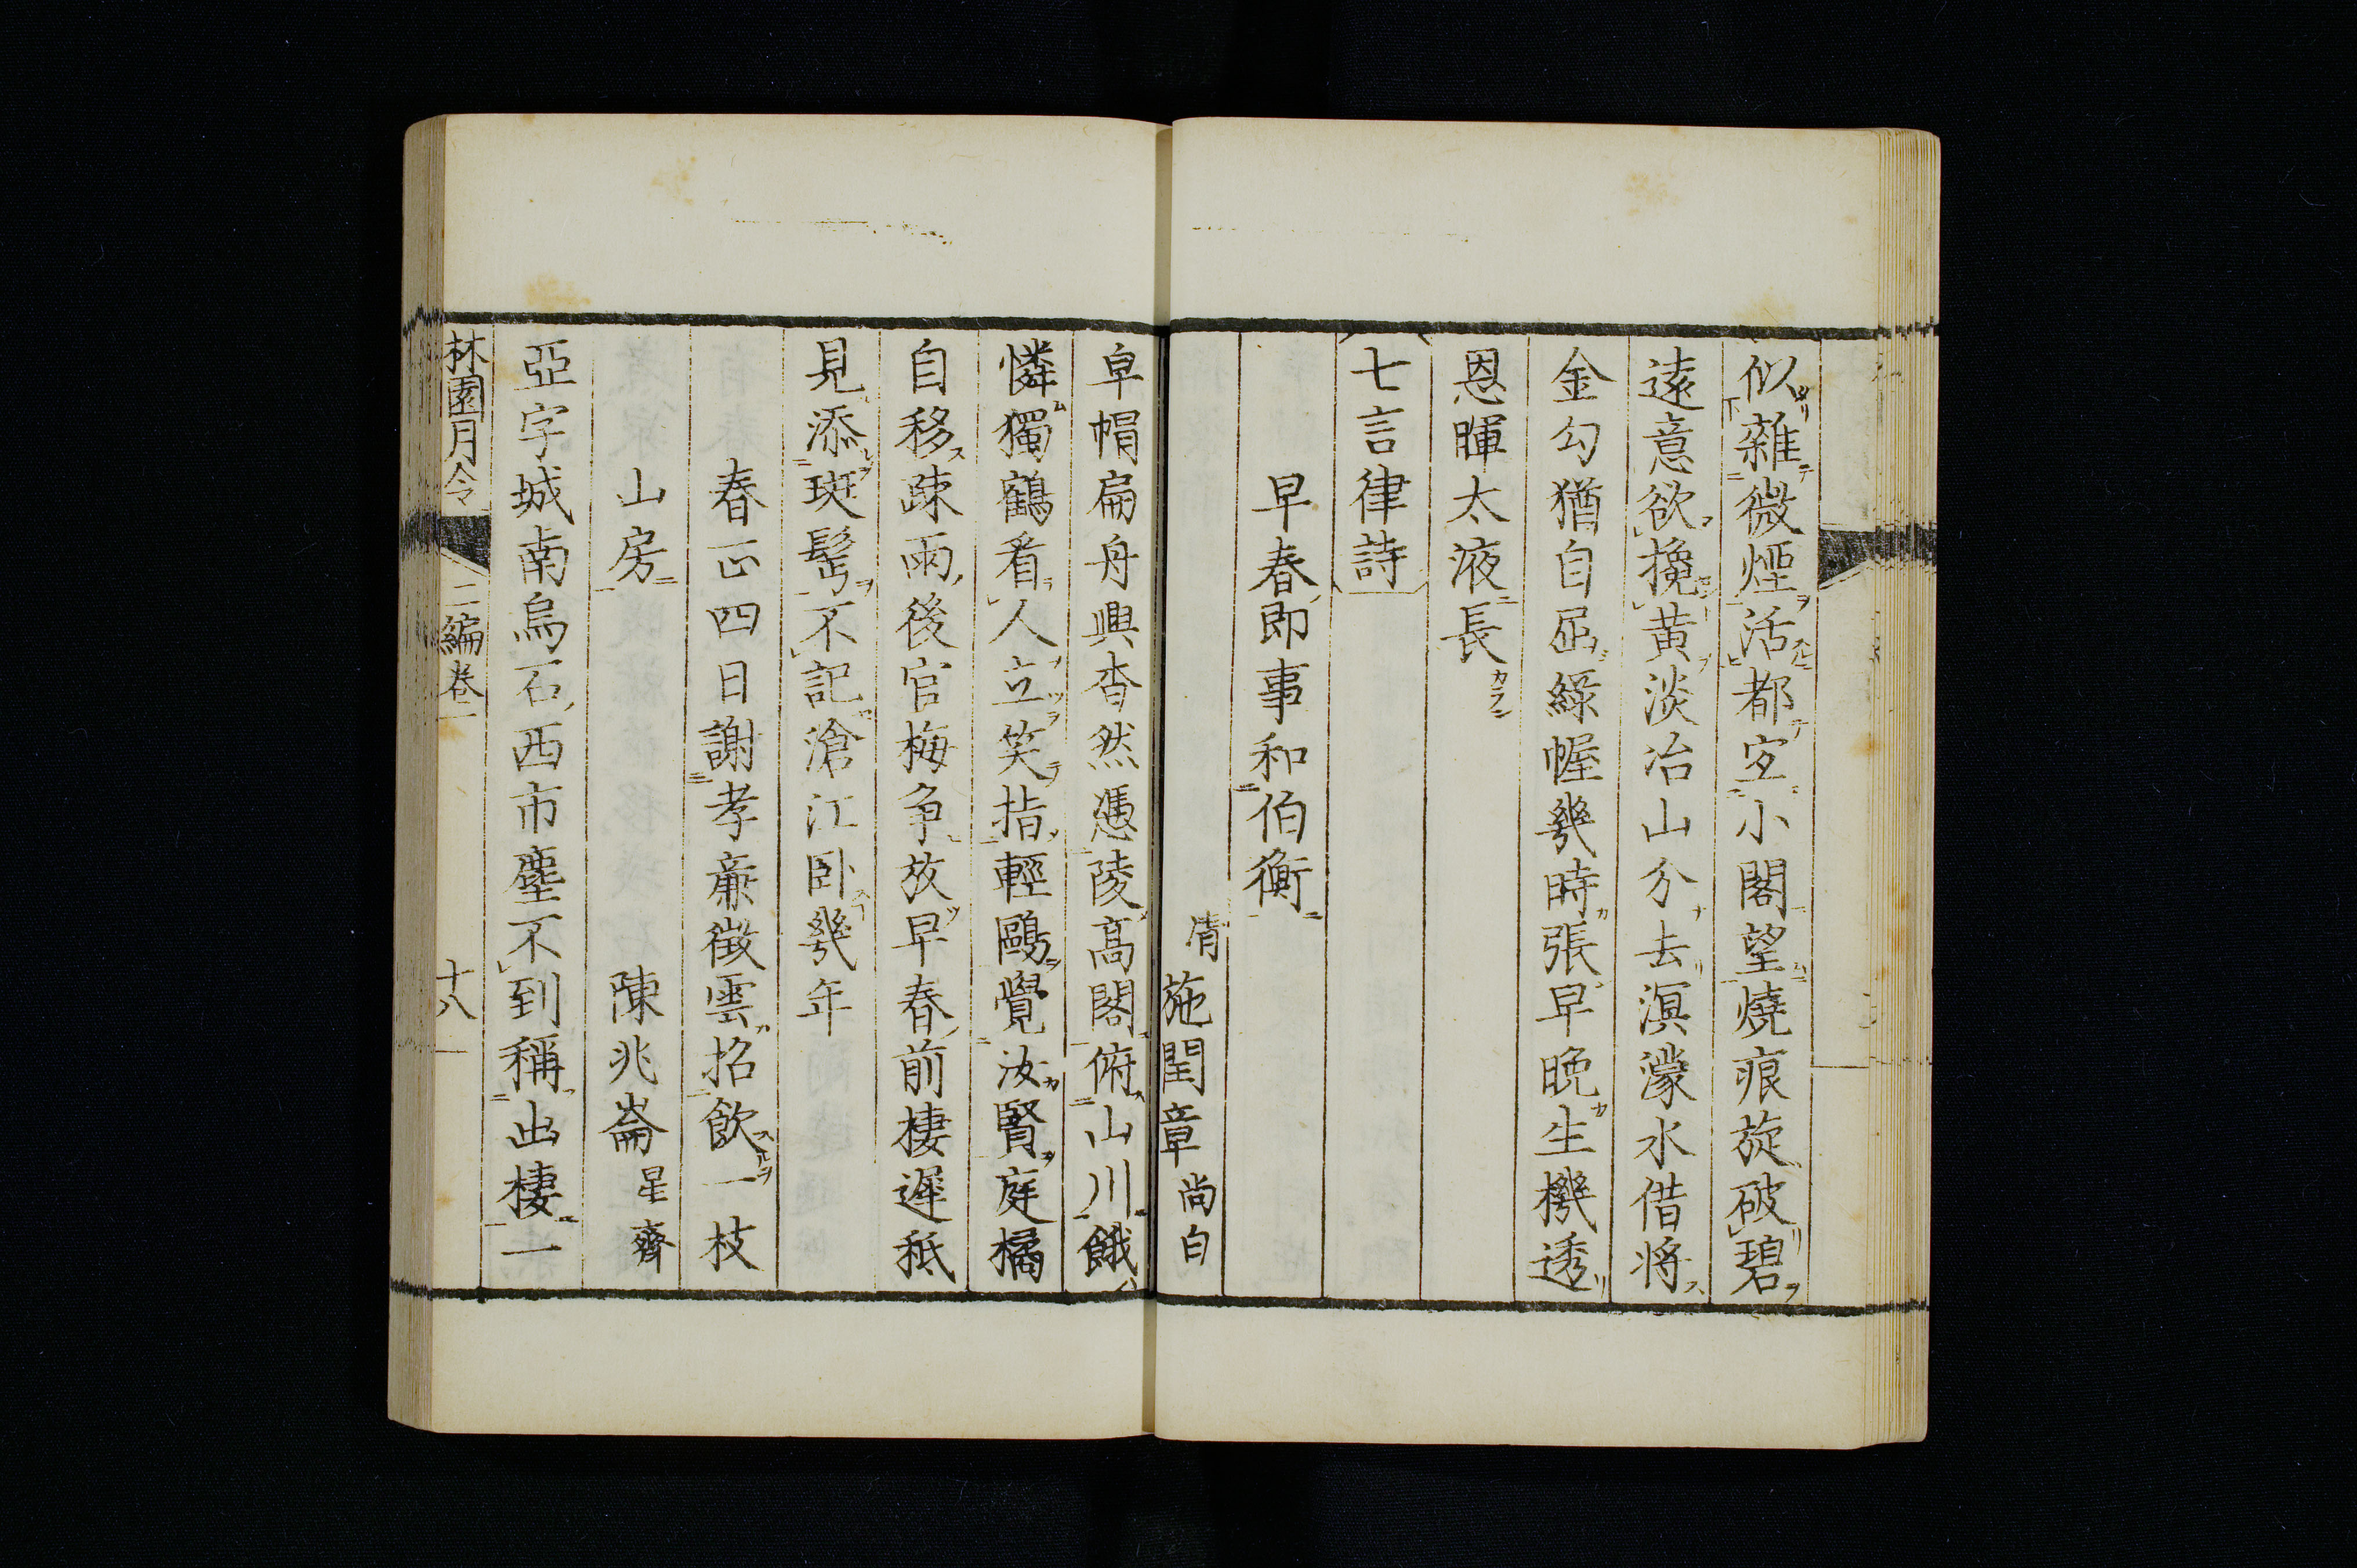 似雜微煙活都定小閣望燒痕旋破碧
遠意欲攙黄淡冶山分去溟濛水借將
金勾猶自屈綠幄幾時張早晚生機透
恩暉太液長
七言律詩
早春即事和伯衡
清 施閏章 尚白
皁帽扁舟興杳然憑陵高閣俯山川餓
憐獨鶴看人立笑指輕鷗覺汝賢庭橘
自移疎雨後官梅争放早春前棲遲秖
見添斑髩不記滄江卧幾年
春正四日謝孝亷徴雲招飲一枝
山房
陳兆崙 星齋
亞字城南烏石西市塵不到稱幽棲一
林園月令 二編卷二 十八